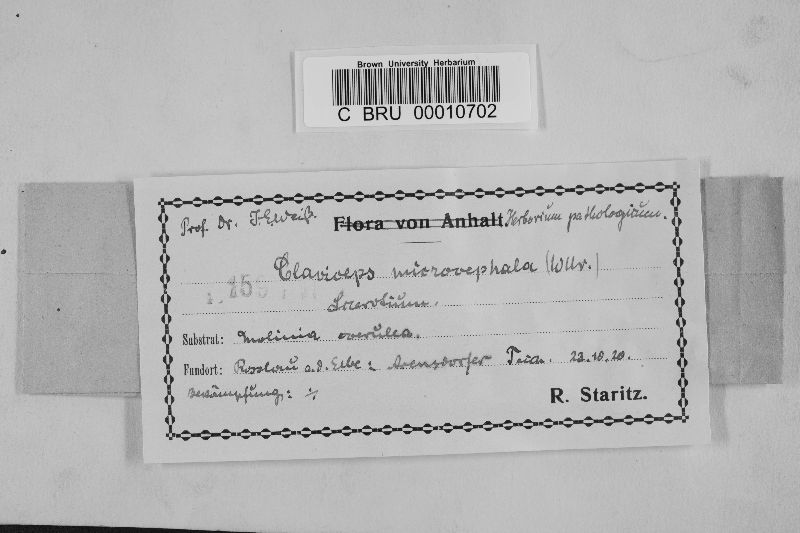 Brown University Herbarium
C BRU 00010702
Prof. Dr. J.E. Weiß. Flora von Anhalt. Herbarium pathologicum.
Claviceps microcephala (Wllr.)
Sclerotium.
Substrat: Molinia coerulea.
Fundort: Rosslau a.d. Elbe: 23.10.20.
Bekämpfung: %
R. Staritz.